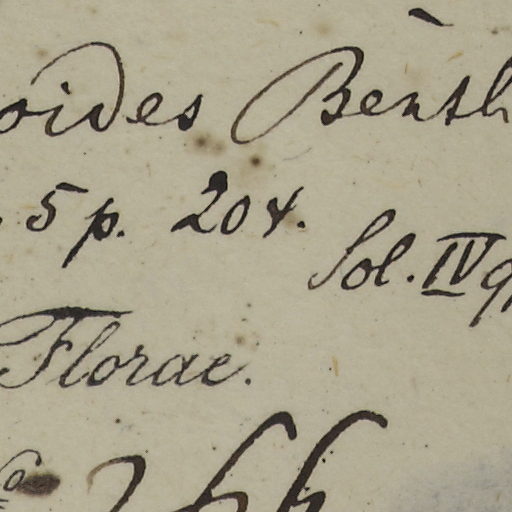 oides Benth
5 p. 204.
Sol. IV
Florae.